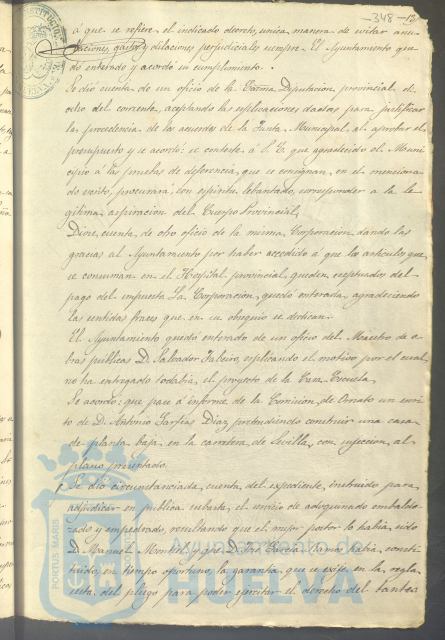 348 - 12
á que se refiere el indicado decreto, unica manera de evitar anu-
laciones, gastos y dilaciones perjudiciales siempre. El Ayuntamiento que-
dó enterado y acordó su cumplimiento.
Se dió cuenta de un oficio de la Excma Diputacion provincial de
ocho del corriente, aceptando las esplicaciones dadas para justificar
la procedencia de los acuerdos de la Junta Municipal al aprobar el
presupuesto y se acordó: se conteste á S. E. que agradecido el Muni-
cipio á las pruebas de deferencia, que se consignan, en el menciona-
do escrito, procurará, con espiritu lebantado, corresponder a la le-
gitima aspiracion del Cuerpo Provincial,
Diose, cuenta, de otro oficio de la misma Corporacion, dando las
gracias al Ayuntamiento por haber accedido a que los articulos, que
se consuman en el Hospital provincial, queden, esceptuados del
pago del impuesto. La Corporacion, quedó enterada, agradeciendo
las sentidas frases que en su obsequio se dedican.
El Ayuntamiento quedó enterado de un oficio del Maestro de o-
bras publicas D. Salvador Faleiro, esplicando el motivo por el cual
no ha entregado todabia, el proyecto de la Casa Escuela,
Se acordó: que pase á informe de la Comision de Ornato un escri-
to de D. Antonio Garfias Diaz, pretendiendo construir una casa
de planta baja en la carretera de Sevilla, con sujecion, al
plano presentado.
Se dió circunstanciada, cuenta del espediente, instruido para
adjudicar en publica subasta, el servicio de adoquinado embaldo-
zado y empedrado, resultando que el mejor postor lo habia sido
D. Manuel Montiel y que D. José Garcia Ramos habia consti-
tuido, en tiempo oportuno, la garantia, que se exije en la regla
del pliego para poder ejercitar el derecho del tanteo
PORTUS MARIS
Ayuntamiento de
HUELVA